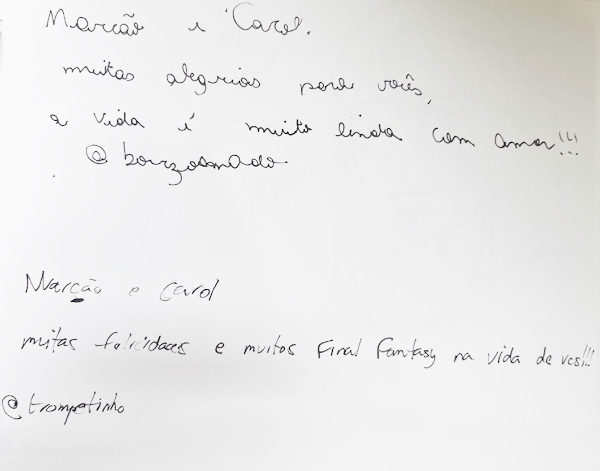 Marcão e Carol.
muitas alegrias para vocês,
a vida é muito linda com amor!!!
@bourzoamado
Marcão e Carol
muitas felicidades e muitos Final Fantasy na vida de vcs!!!
@trompetinho